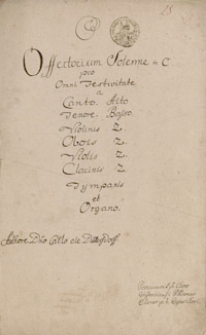 Offertorium Solenne in C
pro
Omni Festivitate
a
Canto. Alto
Tenore. Basso.
Violinis 2.
Obois 2.
Violis 2.
Clarinis 2.
Tympanis
et
Organo.
Authore Dno Carlo de Dittersdorff